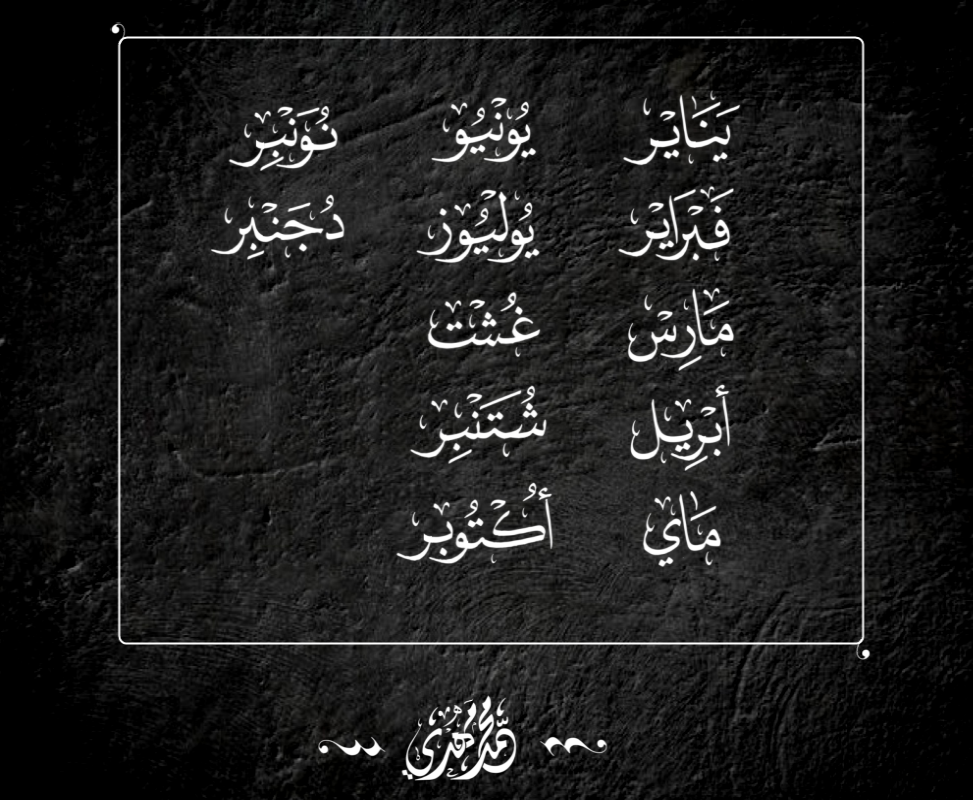 يَنَاير
فَبْرَايْر
مَارِسْ
أَبْرِيل
مَاي
يُونْيُو
يُولْيُوز
غُشْت
شُتَنْبِر
أُكْتُوبر
نُوَنْبِر
دُجَنْبِر
محمد مهدي